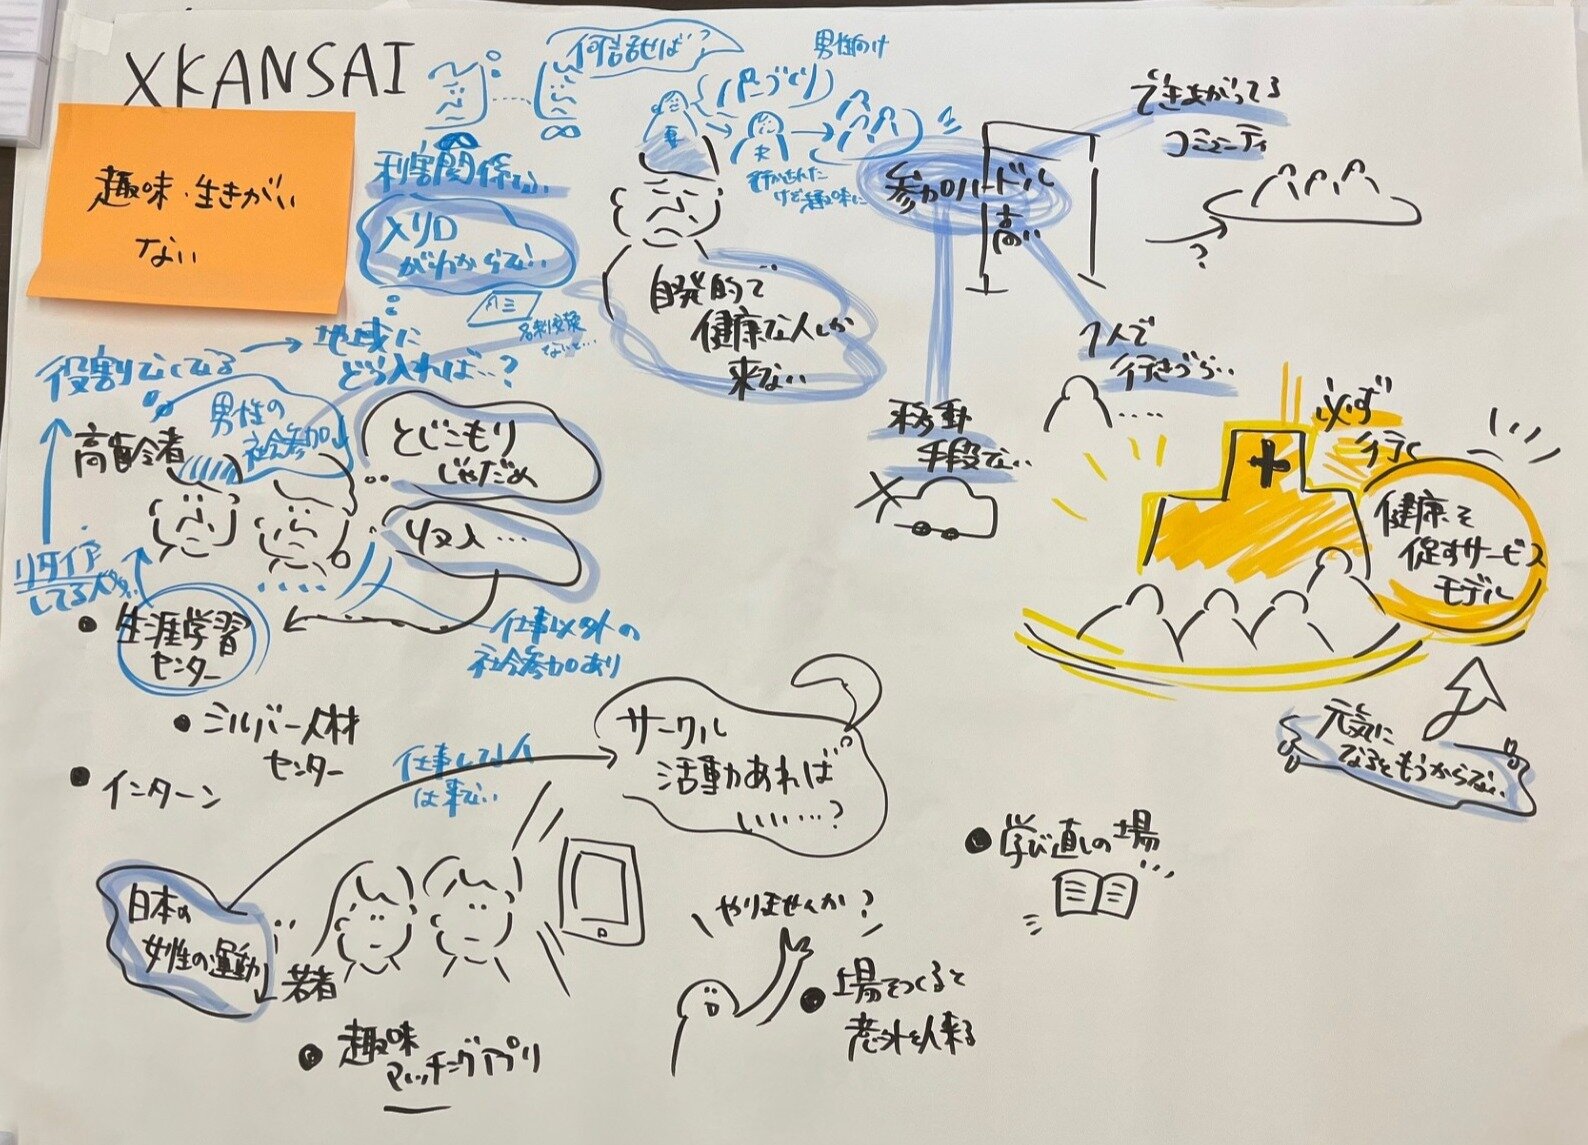 XKANSAI
趣味・生きがい
ない
何話せば?
男性向け
(パンづくり)
妻
夫
行かされた
けど趣味に
利害関係ない
メリット
がわからない…
名刺交換
ないと…
自発的で
健康な人しか
来ない
参加ハードル
高い
できあがってる
コミュニティ
?
1人で
行きづらい…
移動
手段ない…
必ず
行く
健康を
促すサービス
モデル
元気に
なるともうからない
役割なくなる
地域に
どう入れば…?
男性の
社会参加↓
高齢者
とじこもり
じゃだめ
収入…
リタイア
してる人が…
仕事以外の
社会参加あり
・生涯学習
センター
・シルバー人材
センター
・インターン
仕事してる人
は来ない
サークル
活動あれば
いい……?
日本の
女性の運動↓
若者
・趣味
マッチングアプリ
やりませんか?
・場をつくると
意外と人来る
・学び直しの場